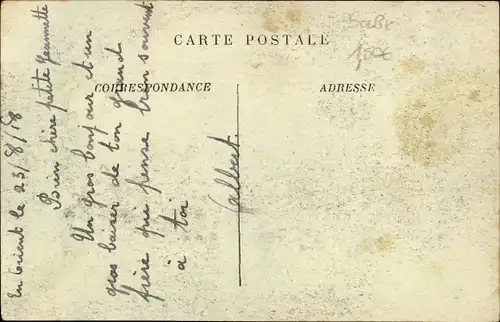 CARTE POSTALE
CORRESPONDANCE
ADRESSE
En Orient le 23/8/18
Bien chère petite Jeannette
Un gros bonjour et un
gros baiser de ton grand
frère qui pense bien souvent
à toi
Galbert.